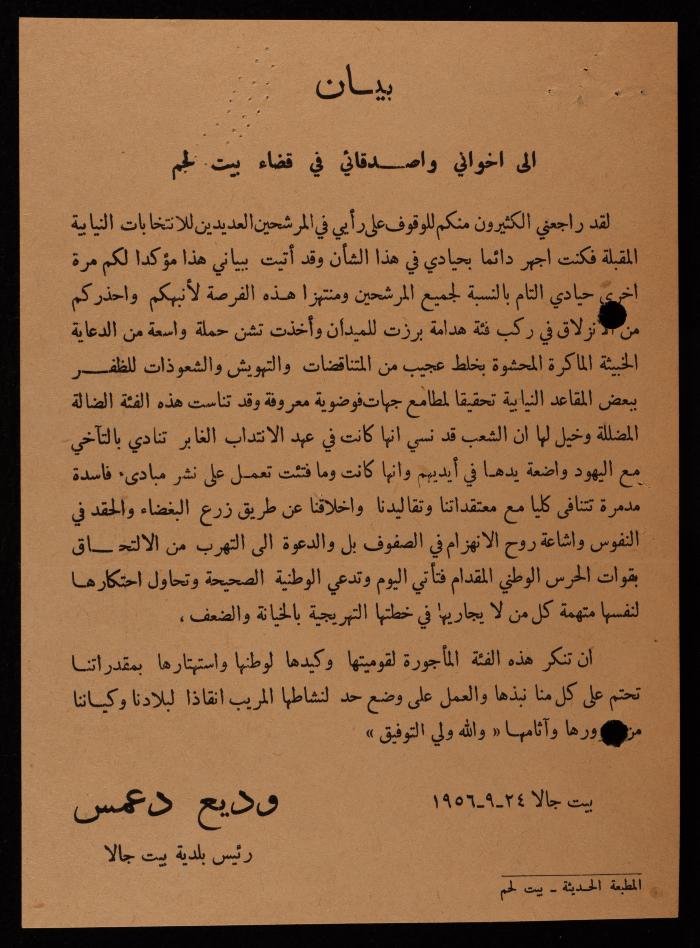 بيـــان
الى اخواني واصـــدقائي في قضاء بيت لحم
لقد راجعني الكثيرون منكم للوقوف على رأيي في المرشحين العديدين للانتخابات النيابية
المقبلة فكنت اجهر دائما بحيادي في هذا الشأن وقد أتيت ببياني هذا مؤكدا لكم مرة
اخرى حيادي التام بالنسبة لجميع المرشحين ومنتهزا هـذه الفرصة لأنبهكم واحذركم
من الانزلاق في ركب فئة هدامة برزت للميدان وأخذت تشن حملة واسعة من الدعاية
الخبيثة الماكرة المحشوة بخلط عجيب من المتناقضات والتهويش والشعوذات للظفـــر
ببعض المقاعد النيابية تحقيقا لمطامع جهات فوضوية معروفة وقد تناست هذه الفئة الضالة
المضللة وخيل لها ان الشعب قد نسي انها كانت في عهد الانتداب الغابر تنادي بالتآخي
مع اليهود واضعة يدهـا في أيديهم وانها كانت وما فتئت تعمـل على نشر مبادىء فاسدة
مدمرة تتنافى كليا مع معتقداتنا وتقاليدنا واخلاقنا عن طريق زرع البغضاء والحقد في
النفوس واشاعة روح الانهزام في الصفوف بل والدعوة الى التهرب من الالتحـــاق
بقوات الحرس الوطني المقدام فتأتي اليوم وتدعي الوطنية الصحيحة وتحاول احتكارهـا
لنفسها متهمة كل من لا يجاريها في خطتها التهريجية بالخيانة والضعف ،
ان تنكر هذه الفئة المأجورة لقوميتها وكيدها لوطنها واستهتارها بمقدراتنـا
تحتم على كل منا نبذها والعمل على وضع حد لنشاطها المريب انقاذا لبلادنا وكياننا
من ورها وآثامهـا « والله ولي التوفيق »
بيت جالا ٢٤-٩-١٩٥٦
وديع دعمس
رئيس بلدية بيت جالا
المطبعة الحديثة - بيت لحم